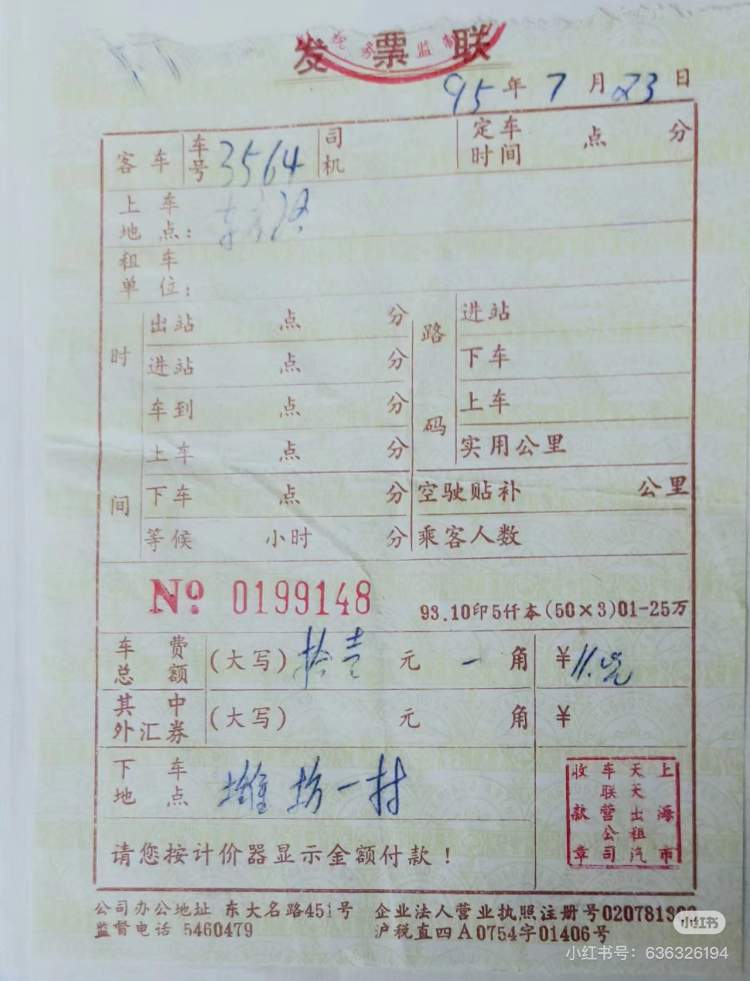 发票联
95年7月23日
客车 车号 3564 司机 定车时间 点 分
上车地点：
租车单位：
时间 路码
出站 点 分 进站
进站 点 分 下车
车到 点 分 上车
上车 点 分 实用公里
下车 点 分 空驶贴补 公里
等候 小时 分 乘客人数
№ 0199148 93.10印5仟本(50×3)01-25万
车费总额 (大写) 拾壹 元 一 角 ¥
其中外汇券 (大写) 元 角 ¥
下车地点 潍坊一村
上海市天天出租汽车联营公司收款章
请您按计价器显示金额付款！
公司办公地址 东大名路451号 企业法人营业执照注册号020781
监督电话 5460479 沪税直四A0754字01406号
小红书
小红书号：636326194